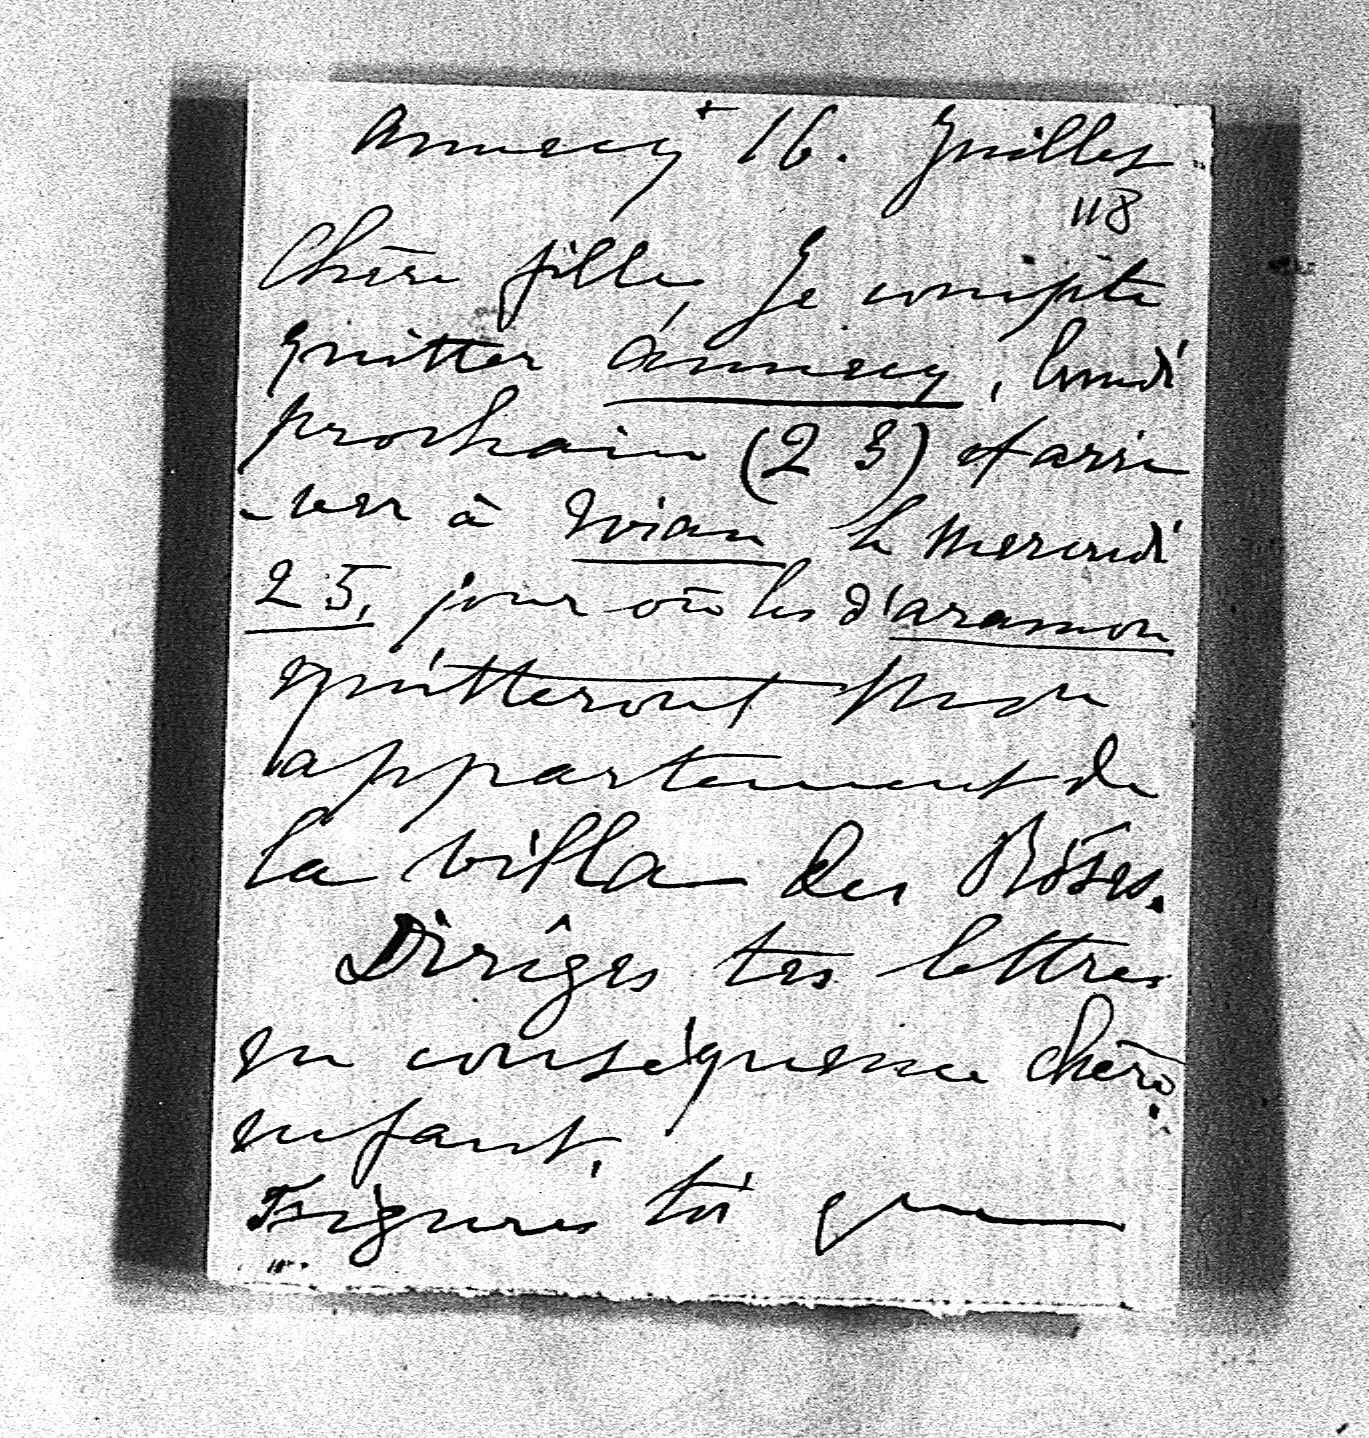 Annecy + 16. Juillet
118
Chère fille, Je compte
quitter Annecy, lundi
prochain (23) et arri
-ver à Evian le mercredi
25, jour où les d'aramon
quitteront mon
appartement de
la villa des Roses.
Diriges tes lettres
en conséquence chère
enfant.
Figures toi que